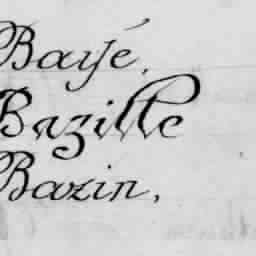 Bayé,
Bazille
Bazin,